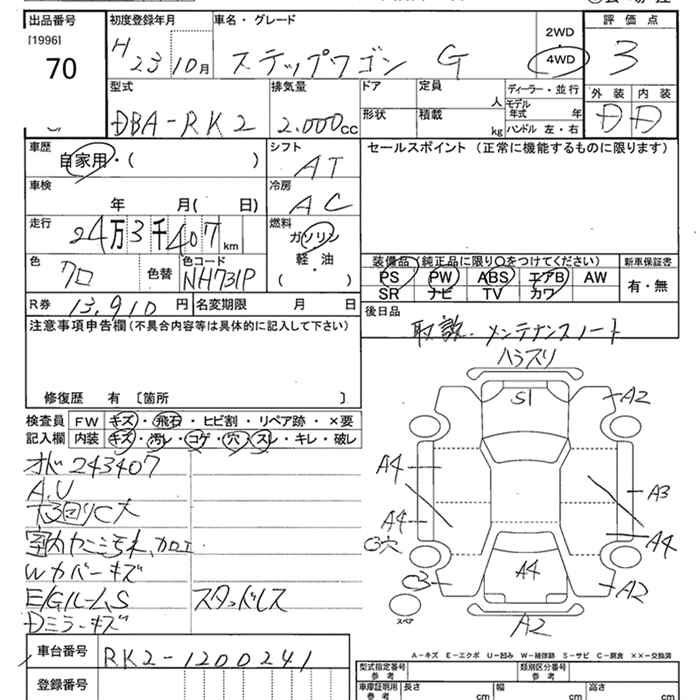 出品番号
[1996]
70
初度登録年月
H 23 10月
車名・グレード
ステップワゴン G
2WD
4WD
評価点
3
外装 内装
D D
型式
DBA-RK2
排気量
2.000cc
ドア
形状
定員
人
積載
kg
ディーラー・並行
モデル年式 年
ハンドル 左・右
車歴
自家用・( )
シフト
AT
セールスポイント (正常に機能するものに限ります)
車検
年 月( 日)
冷房
AC
走行
24万3千407km
燃料
ガソリン
軽・油
( )
色
クロ
色替
色コード
NH731P
装備品(純正品に限り○をつけてください)
PS PW ABS エアB AW
SR ナビ TV カワ
新車保証書
有・無
R券 13,910円
名変期限 月 日
後日品
取説.メンテナンスノート
注意事項申告欄(不具合内容等は具体的に記入して下さい)
修復歴 有 [箇所 ]
検査員記入欄
FW キズ・飛石・ヒビ割・リペア跡・×要
内装 キズ・汚レ・コゲ・穴・スレ・キレ・破レ
243407
A.U
下回りC大
室内ヤニ
Wカバーキズ
E/Gルーム S
スタッドレス
Dミラーキズ
車台番号
RK2-1200241
登録番号
ハラスリ
S1
A2
A4
A3
A4
C3穴
A4
C3
A4
A2
スペア
A2
A-キズ E-エクボ U-凹み W-補修跡 S-サビ C-腐食 XX-交換済
型式指定番号 参考
類別区分番号 参考
車庫証明用 参考
長さ cm
幅 cm
高さ cm